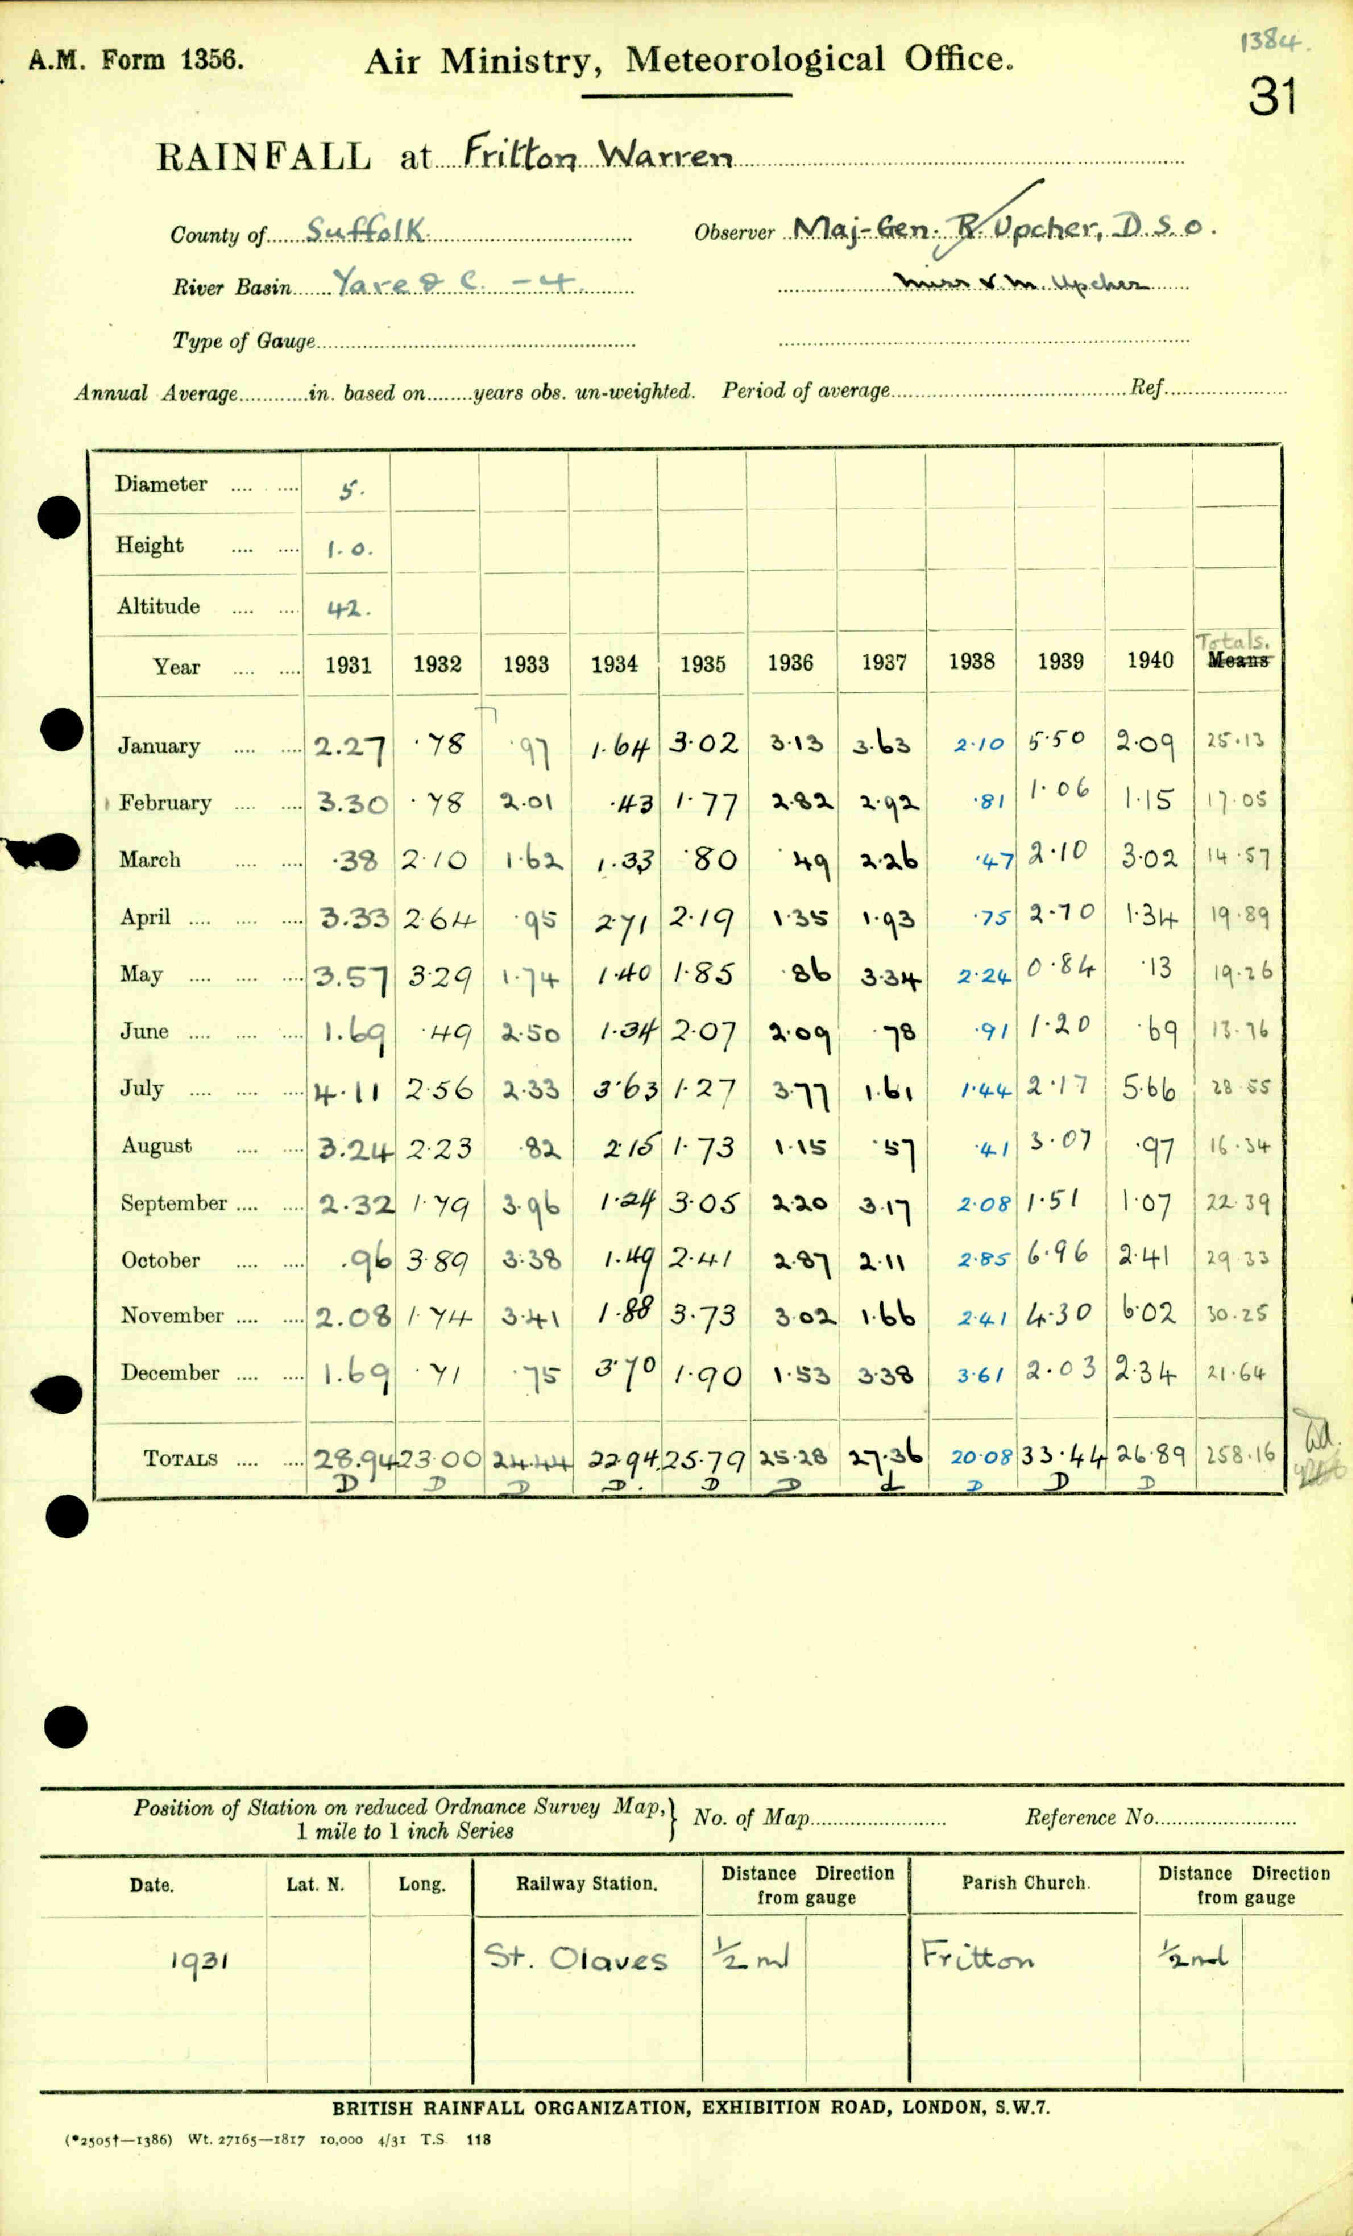 1384.
A.M. Form 1356. Air Ministry, Meteorological Office.
31
RAINFALL at Fritton Warren
County of Suffolk Observer Maj-Gen. R. Upcher, D.S.O.
River Basin Yare & C. - 4 Miss V. M. Upcher
Type of Gauge
Annual Average in. based on years obs. un-weighted. Period of average Ref.
Diameter 5.
Height 1.0.
Altitude 42.
Totals.
Year 1931 1932 1933 1934 1935 1936 1937 1938 1939 1940 Means
January 2.27 .78 .97 1.64 3.02 3.13 3.63 2.10 5.50 2.09 25.13
February 3.30 .78 2.01 .43 1.77 2.82 2.92 .81 1.06 1.15 17.05
March .38 2.10 1.62 1.33 .80 .49 2.26 .47 2.10 3.02 14.57
April 3.33 2.64 .95 2.71 2.19 1.35 1.93 .75 2.70 1.34 19.89
May 3.57 3.29 1.74 1.40 1.85 .86 3.34 2.24 0.84 .13 19.26
June 1.69 .49 2.50 1.34 2.07 2.09 .78 .91 1.20 .69 13.76
July 4.11 2.56 2.33 3.63 1.27 3.77 1.61 1.44 2.17 5.66 28.55
August 3.24 2.23 .82 2.15 1.73 1.15 .57 .41 3.07 .97 16.34
September 2.32 1.79 3.96 1.24 3.05 2.20 3.17 2.08 1.51 1.07 22.39
October .96 3.89 3.38 1.49 2.41 2.87 2.11 2.85 6.96 2.41 29.33
November 2.08 1.74 3.41 1.88 3.73 3.02 1.66 2.41 4.30 6.02 30.25
December 1.69 .71 .75 3.70 1.90 1.53 3.38 3.61 2.03 2.34 21.64
TOTALS 28.94 23.00 24.44 22.94 25.79 25.28 27.36 20.08 33.44 26.89 258.16
D D D D. D D d D D D
Position of Station on reduced Ordnance Survey Map, No. of Map Reference No.
1 mile to 1 inch Series
Date. Lat. N. Long. Railway Station. Distance Direction Parish Church. Distance Direction
from gauge from gauge
1931 St. Olaves ½ ml Fritton ½ ml
BRITISH RAINFALL ORGANIZATION, EXHIBITION ROAD, LONDON, S.W.7.
(*2505†—1386) Wt. 27165—1817 10,000 4/31 T.S. 118